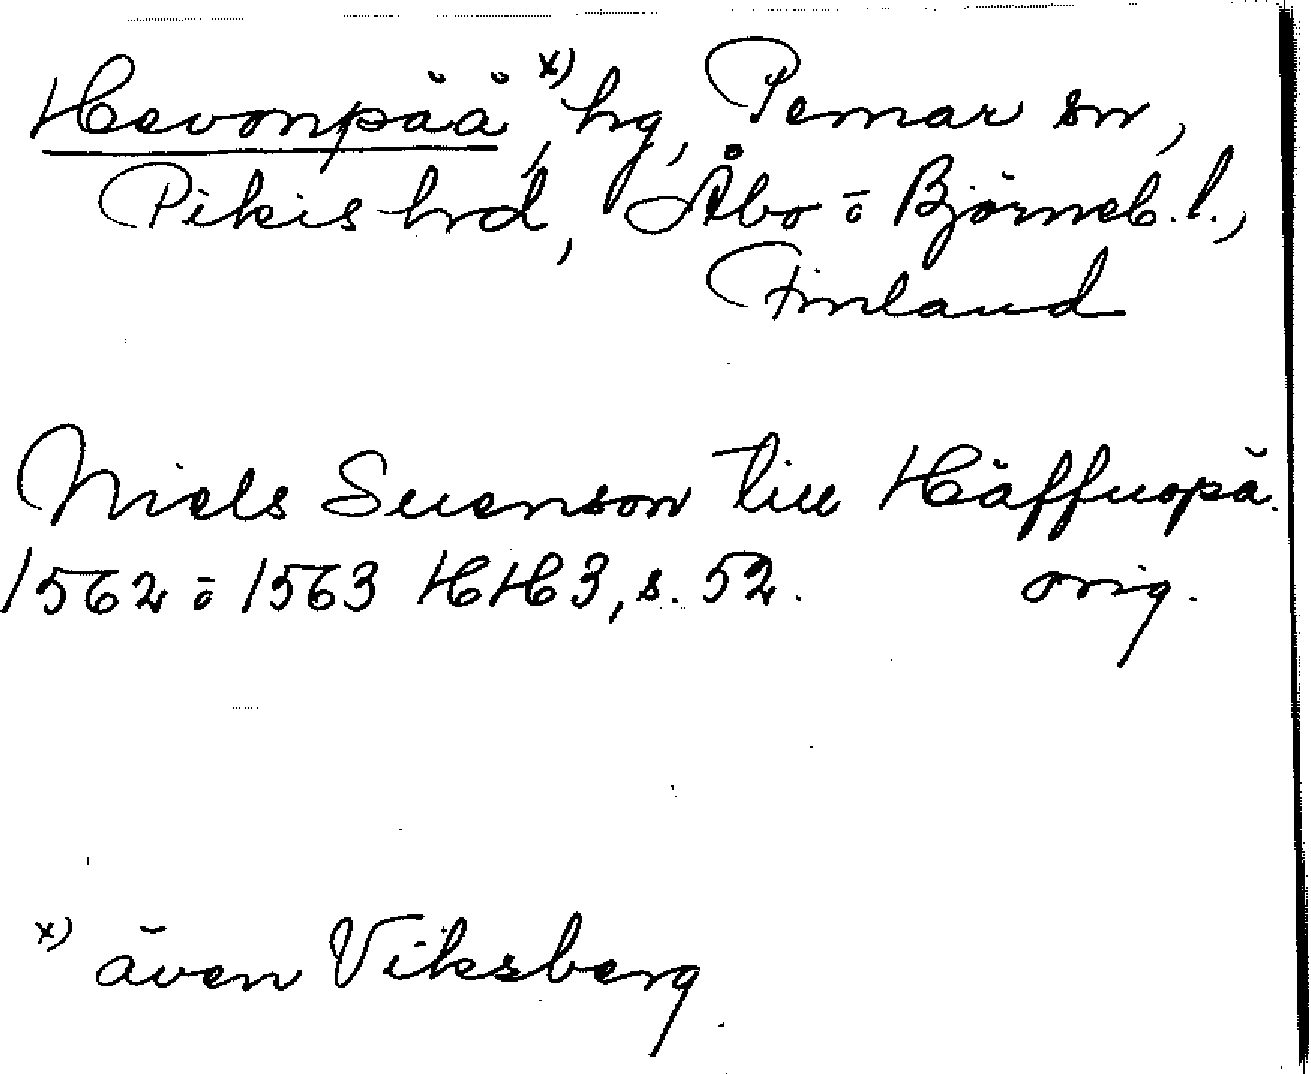 Hevonpää, x) hg, Pemar sn,
Pikis hrd, Åbo o Björneb. l.,
Finland
Niels Suenson till Häffuopä.
1562 o 1563 HH3, s. 52. orig.
x) även Viksberg